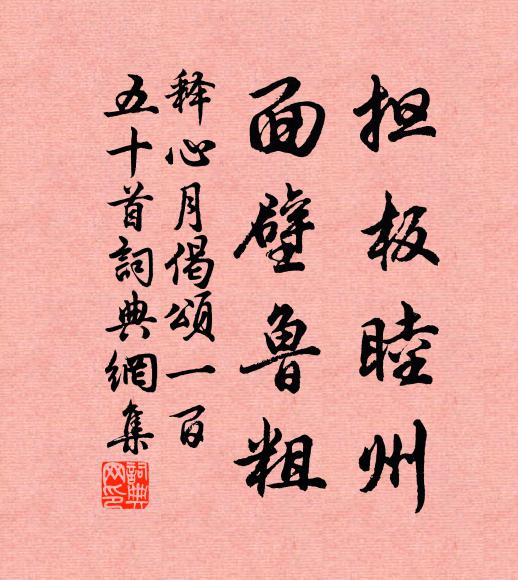 担板睦州
面壁鲁粗
释心月偈頌一百
五十首詞典網集
詞典网印